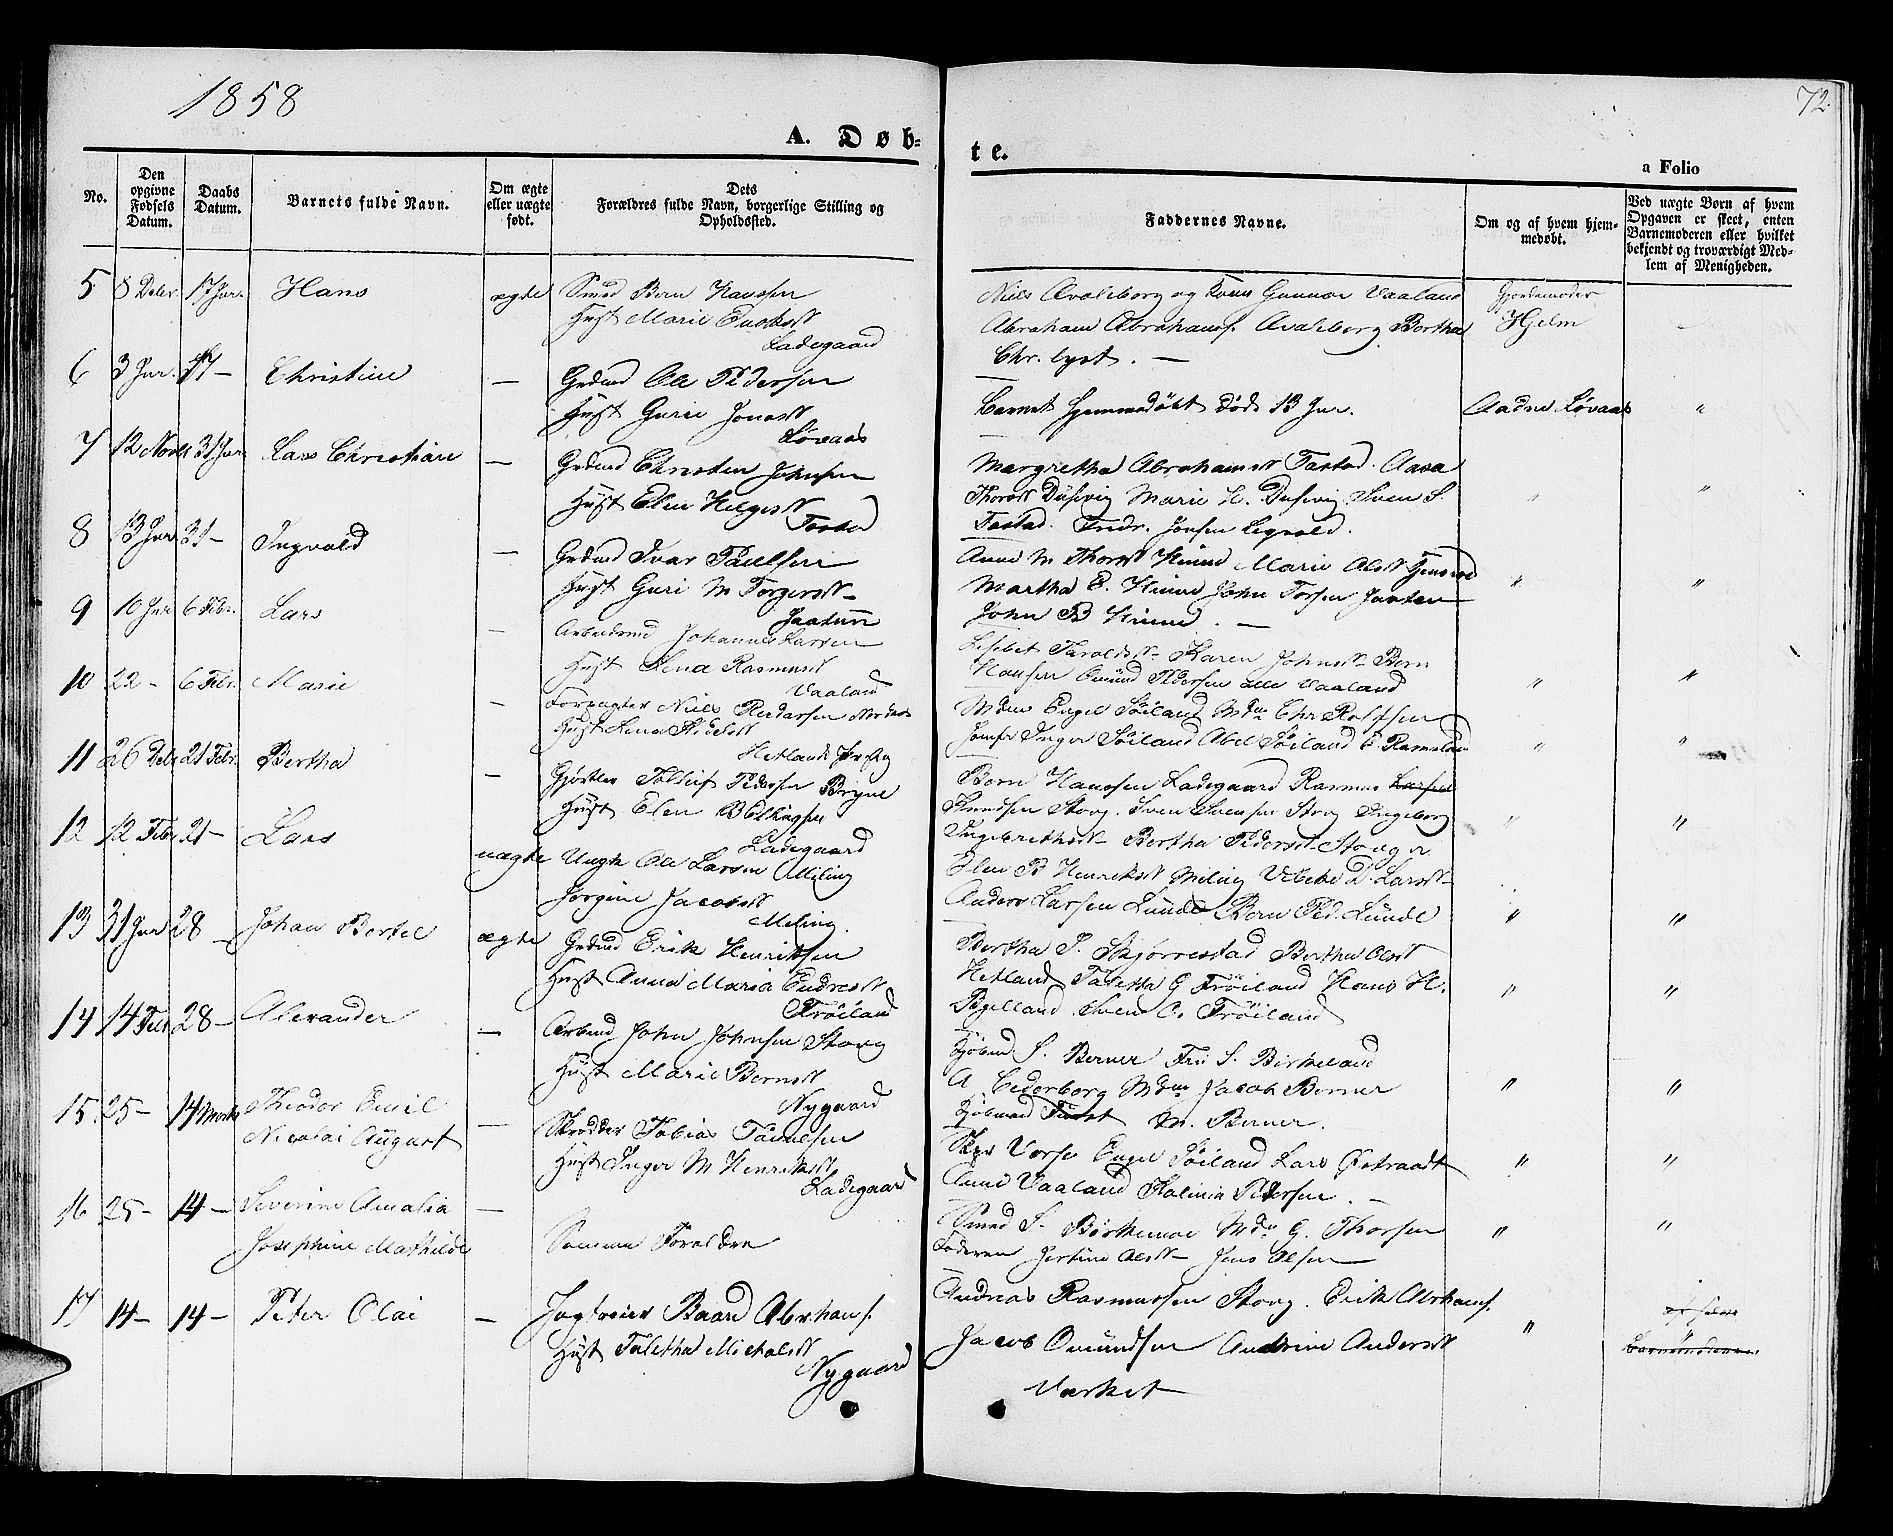 1858
72.
A. Døb-
te.
a Folio
No.
Den opgivne Fødsels Datum.
Daabs Datum.
Barnets fulde Navn.
Om ægte eller uægte født.
Dets
Forældres fulde Navn, borgerlige Stilling og Opholdssted.
Faddernes Navne.
Om og af hvem hjemmedøbt.
Ved uægte Børn af hvem Opgaven er skeet, enten Barnemoderen eller hvilket bekjendt og troværdigt Medlem af Menigheden.
5 8 Decbr. 17 Jnr. Hans ægte Smed Bern Hanssen
Hust Marie
Ladegaard
Niels Avaleborg og Gunnar Vaaland
Abraham Abrahams. Avaleborg Bertha
Chr. lyst. —
Gjordemoder
Hjelm
6 3 Jnr. 17 — Christine — Grdmd Ole Pedersen
Hust Guri Jonasdt
Løvaas
Barnet hjemmedøbt døde 13 Jnr.
Aadne Løvaas "
7 12 Novb 31 Jnr Lars Christian — Grdmd Christen Johnsen
Hust Elen Helgesdt
Tastad
Margretha Abrahamsdt Tastad. Aasa
Thorsdt Dusevig Marie H. Dusevig Sven S.
Tastad. Fredr. Jonsen
" "
8 13 Jnr 31 — Ingvald — Grdmd Ivar Paulsen
Hust Guri M Torgersdt
Jaatun
Anne M Thorsdt Hinne Marie Olsdt
Martha E. Hinne John Torsen Jaaten
John B Hinne. —
" "
9 10 Jnr 6 Febr. Lars — Arbeidsmd Johannes Larsen
Hust Lena Rasmusdt
Vaaland
Lisbet Taraldsdt Karen Johnsdt Bern
Hansen Omund Pedersen alle Vaaland
" "
10 22 — 6 Febr. Marie — Forpagter Niels Pedersen
Hust Lena
Hetlands Prstg
Mdm Engel Søiland Mdm Chr Rolfsen
Jomfr Inger Søiland Abel Søiland
" "
11 26 Debr 21 Febr. Bertha — Gjørtler Tollef Pedersen Bryne
Hust Elen B Ellingsen
Ladegaard
Bern Hanssen Ladegaard Rasmus Larsen
Knudsen Storg. Sven Svensen Storg Ingeborg
Ingebrethsdt Bertha Pedersdt Storger
" "
12 12 Febr 21 — Lars uægte Ungk Ole Larsen Meling
Jorgine Jacobsdt
Meling.
Elen B Henriksdt Meling Vibeke D. Larsdt
Anders Larsen Lunde Bern Ped. Lunde
" "
13 31 Jnr 28 — Johan Bertel ægte Grdmd Erik Henriksen
Hust Anna Maria Endresdt
Frøiland
Bertha J. Skjørrestad Bertha Olsdt
Hetland Taletta G Frøiland Hans H.
Bgelland Sven O. Frøiland
" "
14 14 Febr 28 — Alexander — Arbmd John Johnsen Storg
Hust Marie Bernsdt
Nygaard
Kjøbmd S. Berner Fru S. Birkeland
A Cederborg Mdm Jacob Berner
Kjøbmand M. Berner.
" "
15. 25 — 14 Marts Theodor Emil
Nicolai August — Skrædder Tobias
Hust Inger M Henriksdt
Ladegaard
Engel Søiland Lars Østraadt
Anne Vaaland Kalinia Pedersen. —
" "
16 25 — 14 — Severine Amalia
Josephine Mathilde — Samme Forældre
Smed S. Birkemoe Mdm G. Thorsen
Faderen Jertine Olsdt Jens Olsen
" "
17 14 — 14 — Peter Olai — Jagtreier Baard Abrhams.
Hust Taletha Michelsdt
Nygaard
Andreas Rasmussen Storg. Erik Abrhams.
Jacob Omundsen Andrine Andersdt
Varket
"